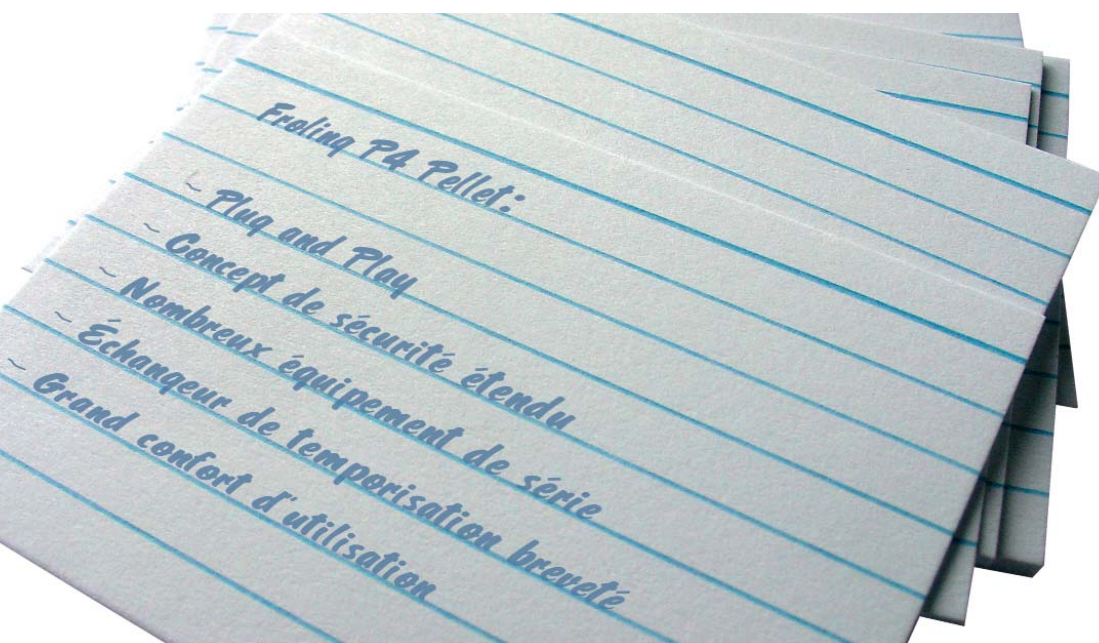 Froling P4 Pellet:
~ Plug and Play
~ Concept de sécurité étendu
~ Nombreux équipement de série
~ Échangeur de temporisation breveté
~ Grand confort d'utilisation